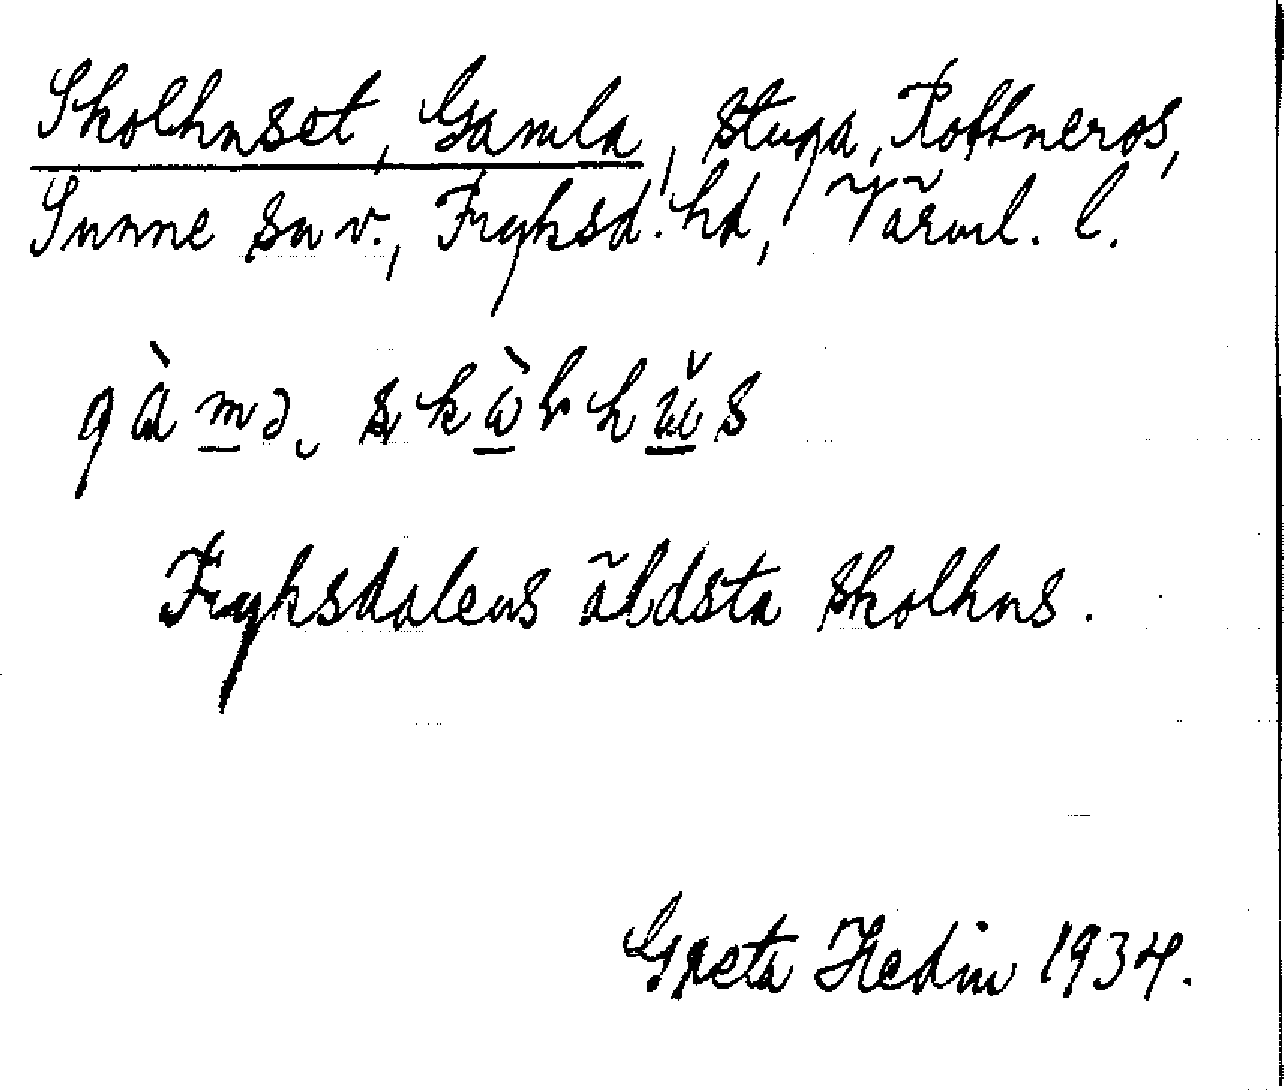 Skolhuset, Gamla, stuga, Rottneros,
Sunne sn v., Fryksd. hd, Värml. l.
gàmə, skòlhŭs
Fryksdalens äldsta skolhus.
Greta Hedin 1934.